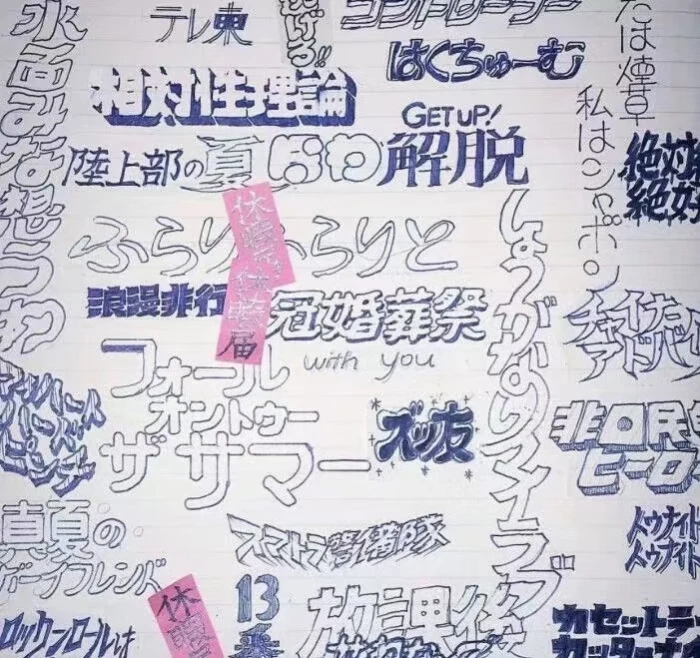 水面みな想うわ
テレ東
げる!!
コントローラー
は煙草
私はシャボン
はくちゅーむ
相対性理論
GET UP!
解脱
陸上部の夏
ほわ
絶対
絶好
ふらりふらりと
休暇
休暇届
浪漫非行
冠婚葬祭
with you
しょうがないマイラブ
チャイナ
アドバ
フォール
オントゥー
ザサマー
ズッ友
非国民
ヒーロー
ピンチ
真夏の
ボーイフレンド
スマトラ警備隊
トゥナイト
トゥナイト
ロックンロールは
休暇
13
番
放課後
カセットテ
カッターナ